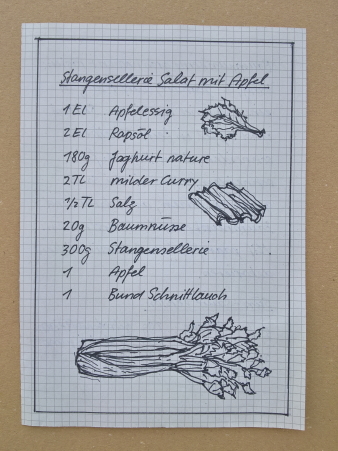 Stangensellerie Salat mit Apfel
1 El Apfelessig
2 El Rapsöl
180g Joghurt nature
2 TL milder Curry
1/2 TL Salz
20g Baumnüsse
300g Stangensellerie
1 Apfel
1 Bund Schnittlauch